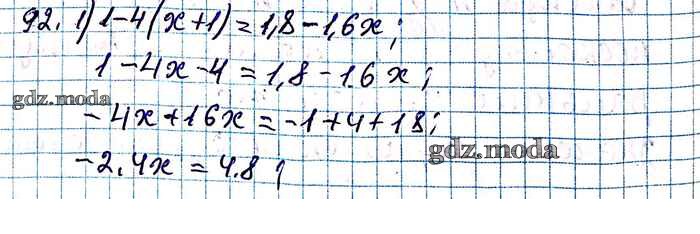 92. 1) 1-4(x+1)=1,8-1,6x;
1-4x-4=1,8-1.6x;
gdz.moda
-4x+1.6x=-1+4+1.8;
gdz.moda
-2.4x=4.8;